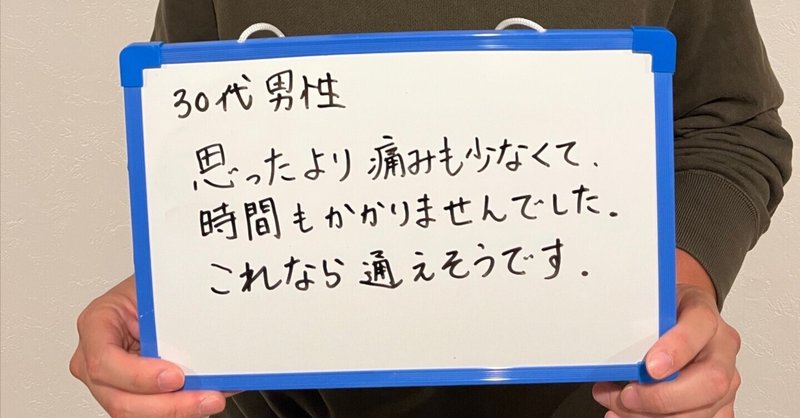 30代 男性
思ったより 痛みも少なくて、
時間もかかりませんでした。
これなら 通えそうです。